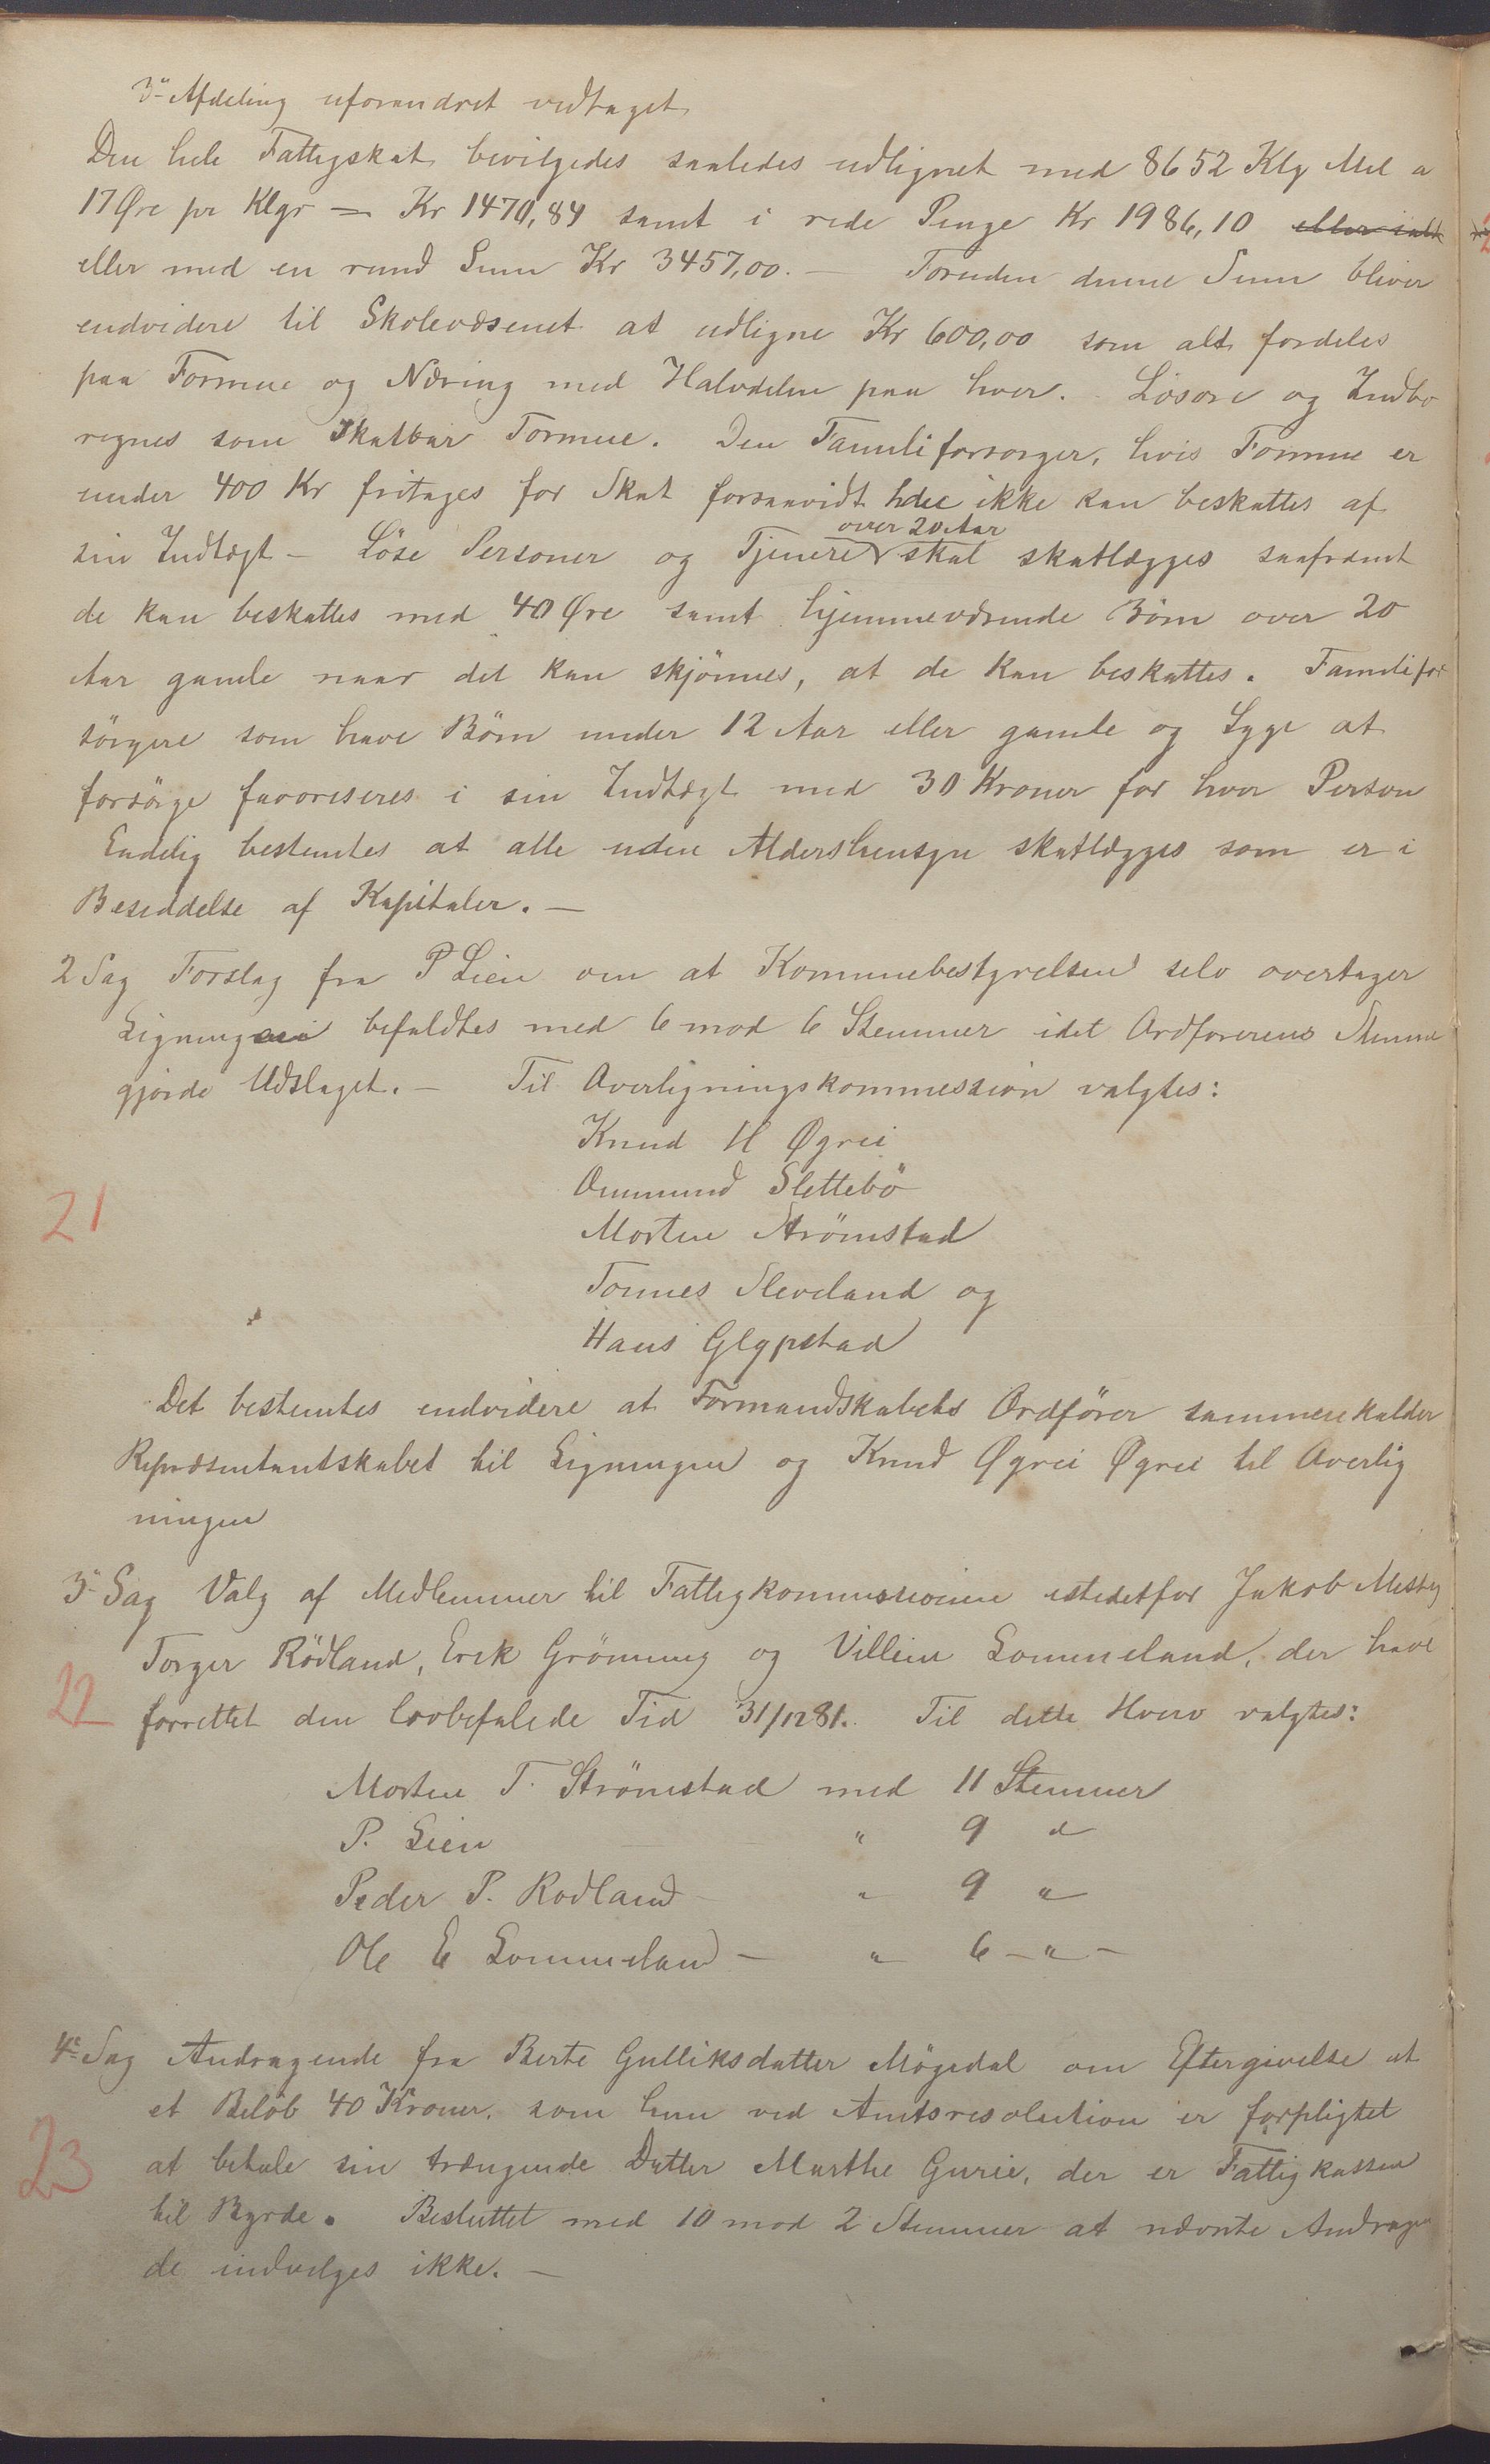 3die Afdeling uforandret vedtaget
Den hele Fattigskat bevilgedes saaledes udlignet med 8652 Klg Mel a
17 Øre pr Klgr = Kr 1470,84 samt i rede Penge Kr 1986,10 eller ialt
eller med en rund Sum Kr 3457,00. — Foruden denne Sum bliver
endvidere til Skolevæsenet at udligne Kr 600,00 som alt fordeles
paa Formue og Næring med Halvdelen paa hver. Løsøre og Indbo
regnes som skatbar Formue. Den Familiforsørger, hvis Formue er
under 400 Kr fritages for Skat forsaavidt hden ikke kan beskattes af
over 20 Aar
sin Indtægt — Löse Personer og Tjenere skal skatlægges saafremt
de kan beskattes med 40 Øre samt hjemmeværende Börn over 20
Aar gamle naar det kan skjönnes, at de kan beskattes. Familifor
sörgere som have Börn under 12 Aar eller gamle og Syge at
forsörge favoriseres i sin Indtægt med 30 Kroner for hver Person
Endelig bestemtes at alle uden Aldershensyn skatlægges som er i
Besiddelse af Kapitaler. —
2 Sag Forslag fra P Lien om at Kommunebestyrelsen selv overtager
Ligningen bifaldtes med 6 mod 6 Stemmer idet Ordførerens Stemme
gjorde Udslaget. — Til Overligningskommission valgtes:
Knud H Øgrei
Ommund Slettebö
21
Morten Strömstad
Tonnes Sleveland og
Hans Glypstad
Det bestemtes endvidere at Formandskabets Ordförer sammenkalder
Repræsentantskabet til Ligningen og Knud Øgrei Øgrei til Overlig
ningen
3die Sag Valg af Medlemmer til Fattigkommissionen istedetfor Jakob Mesty
Torger Rödland, Erik Gröning og Villum Lommeland, der have
22
forrettet den lovbefalede Tid 31/12 81. Til dette Hverv valgtes:
Morten T. Strömstad med 11 Stemmer
P. Lien " 9 "
Peder P. Rodland " 9 "
Ole E Lommeland — " 6 — " —
4de Sag Andragende fra Berte Gulliksdatter Mögedal om Eftergivelse at
et Belöb 40 Kroner, som hun ved Amtsresolution er forpligtet
23
at betale sin trængende Datter Marthe Gurie, der er Fattigkassen
til Byrde. Besluttet med 10 mod 2 Stemmer at nævnte Andragen
de indvilges ikke. —